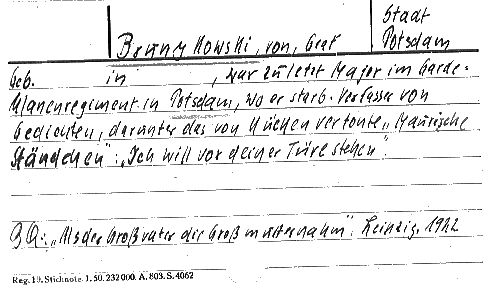 Stadt
Brunykowski, von, Graf Potsdam
Geb. in , war zuletzt Major im Garde-
Ulanenregiment in Potsdam, wo er starb. Verfasser von
Gedichten, darunter das von Kücken vertonte „Maurische
Ständchen“: „Ich will vor deiner Türe stehen“.
BQ: „Als der Großvater die Großmutter nahm“. Leipzig, 1922
Reg. 19. Stichnote. 1. 50. 232 000. A. 803. S. 4062